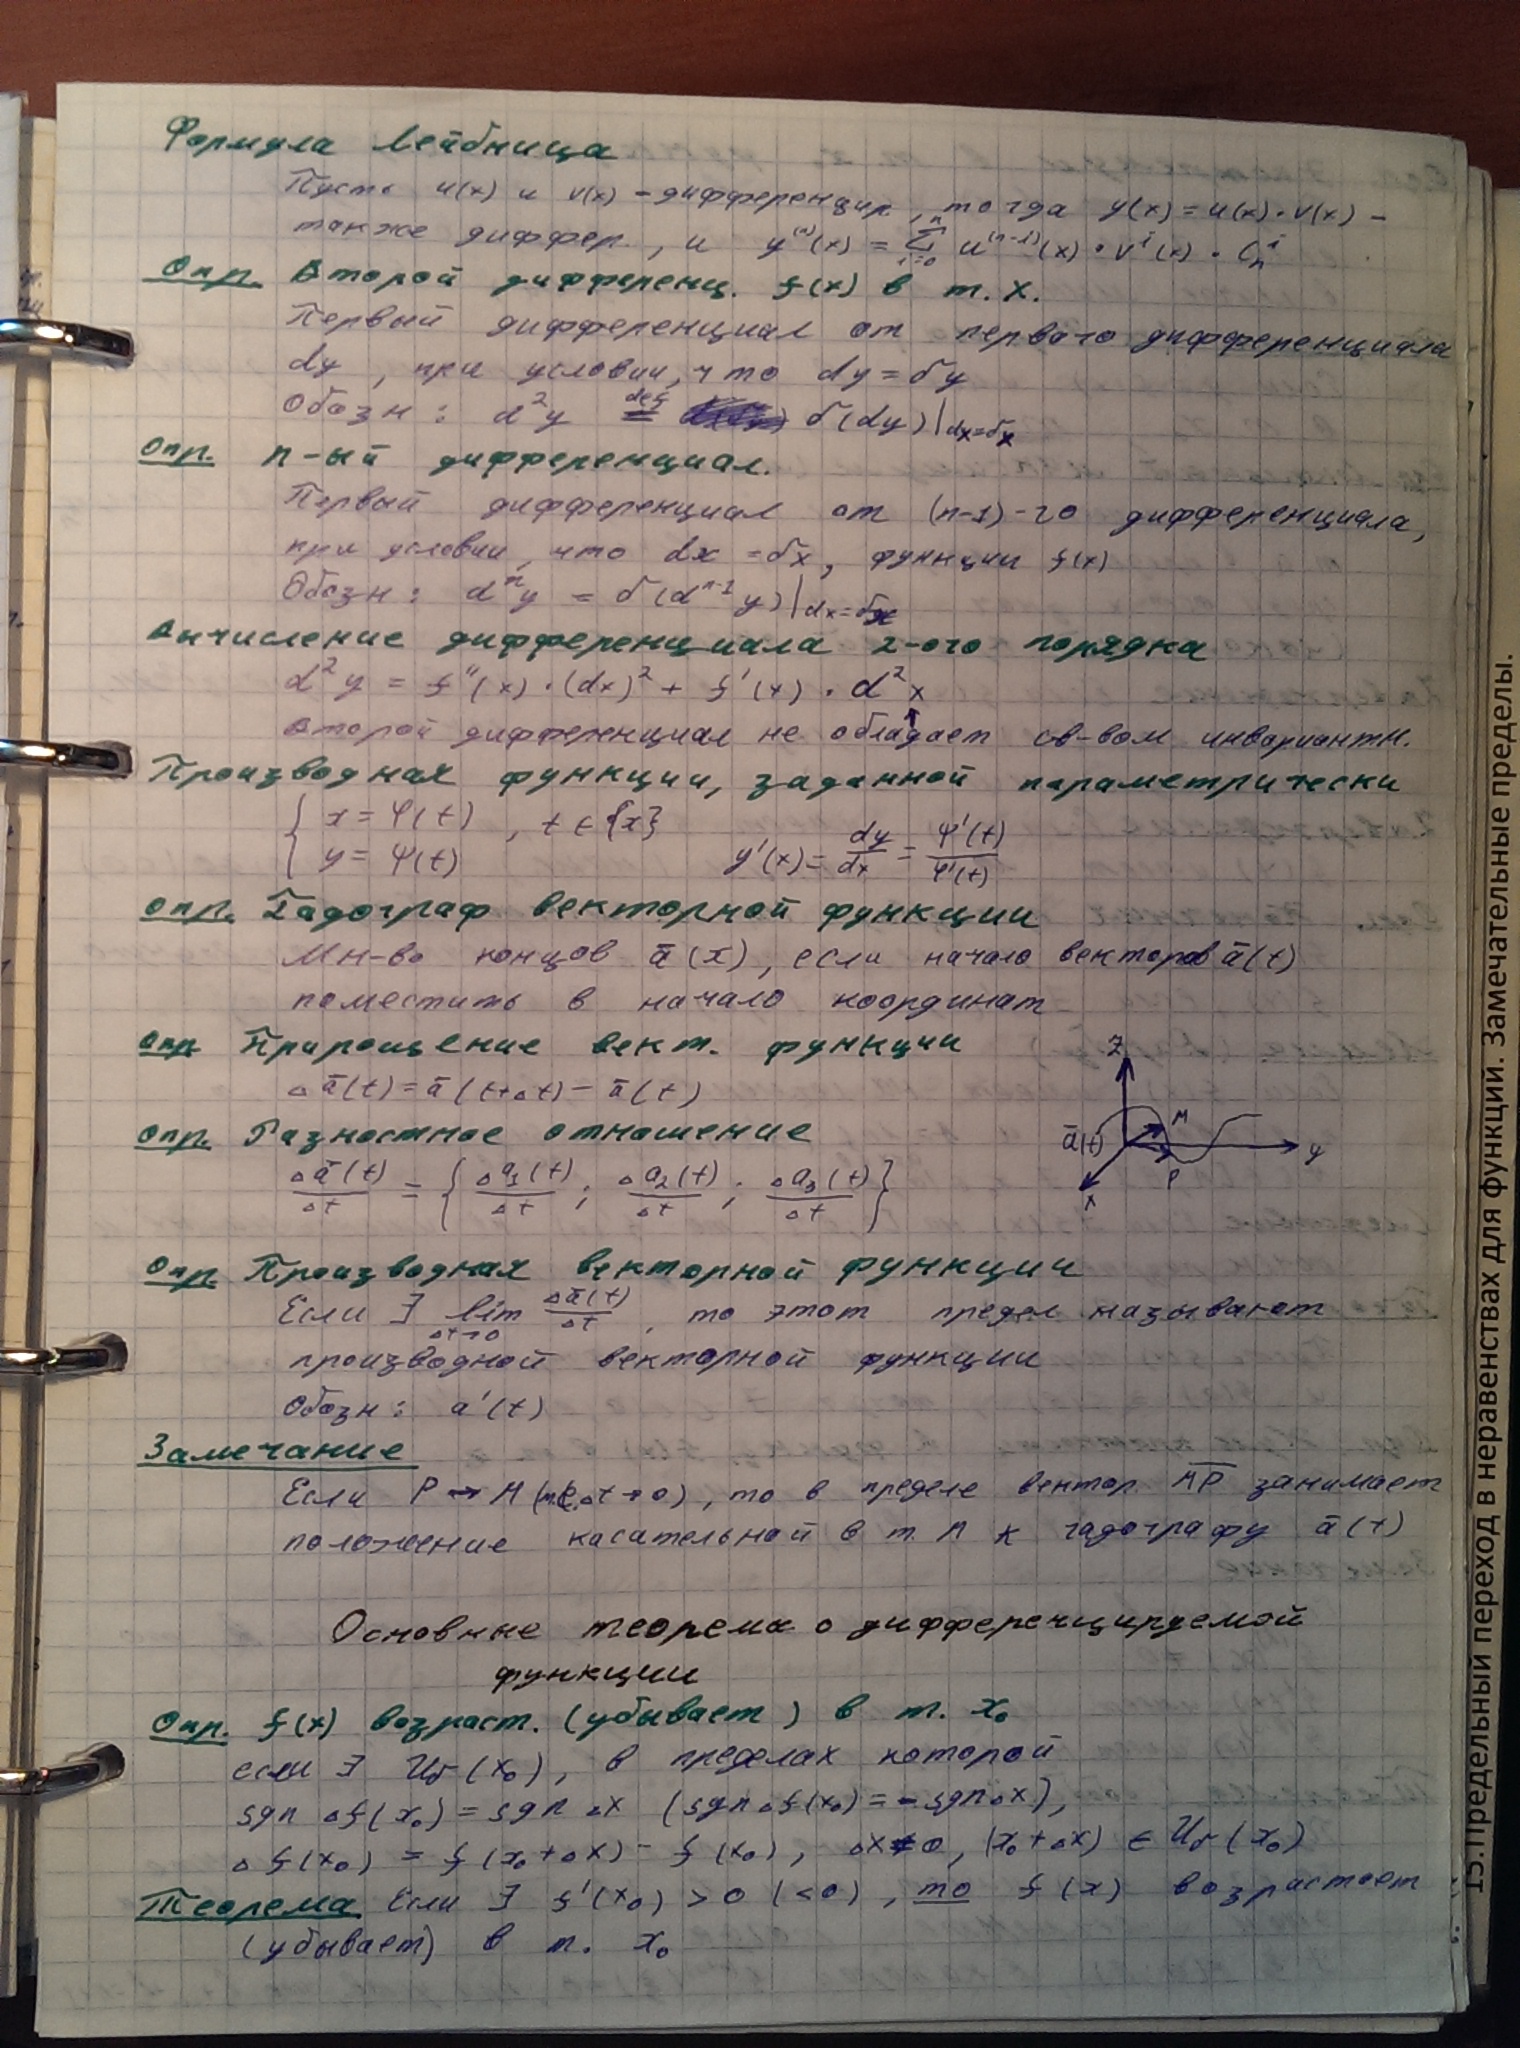 Формула Лейбница
Пусть u(x) и v(x) - дифференцир, тогда y(x) = u(x)·v(x) -
также диффер., и y⁽ⁿ⁾(x) = Σⁿᵢ₌₀ u⁽ⁿ⁻ⁱ⁾(x)·vⁱ(x)·Cₙⁱ
Опр. Второй дифференц. f(x) в т. x.
Первый дифференциал от первого дифференциала
dy, при условии, что dy = δy
Обозн: d²y ≝ δ(dy)|dx=δx
Опр. n-ый дифференциал.
Первый дифференциал от (n-1)-го дифференциала,
при условии, что dx = δx, функции f(x)
Обозн: dⁿy = δ(dⁿ⁻¹y)|dx=δx
Вычисление дифференциала 2-ого порядка
d²y = f''(x)·(dx)² + f'(x)·d²x
↑
Второй дифференциал не обладает св-вом инвариантн.
Производная функции, заданной параметрически
{ x = φ(t)
y = ψ(t) , t ∈ {x} y'(x) = dy/dx = ψ'(t)/φ'(t)
Опр. Гадограф векторной функции
Мн-во концов ā(x), если начало векторов ā(t)
поместить в начало координат
Опр Прирощение вект. функции
Δā(t) = ā(t+Δt) - ā(t)
Опр. Разностное отношение
Δā(t)/Δt = {Δa₁(t)/Δt ; Δa₂(t)/Δt ; Δa₃(t)/Δt}
z
M
ā(t)
y
P
x
Опр Производная векторной функции
Если ∃ lim Δt→0 Δā(t)/Δt , то этот предел называют
производной векторной функции
Обозн: a'(t)
Замечание
Если P → M (т.е. Δt → 0), то в пределе вектор MP занимает
положение касательной в т. M к гадографу ā(t)
Основные теорема о дифференцируемой
функции
Опр. f(x) возраст. (убывает) в т. x₀
если ∃ Uδ(x₀), в пределах которой
sgn Δf(x₀) = sgn Δx (sgn Δf(x₀) = - sgn Δx),
Δf(x₀) = f(x₀+Δx) - f(x₀), Δx ≠ 0, (x₀+Δx) ∈ Uδ(x₀)
Теорема Если ∃ f'(x₀) > 0 (<0), то f(x) возрастает
(убывает) в т. x₀
15.Предельный переход в неравенствах для функции. Замечательные пределы.